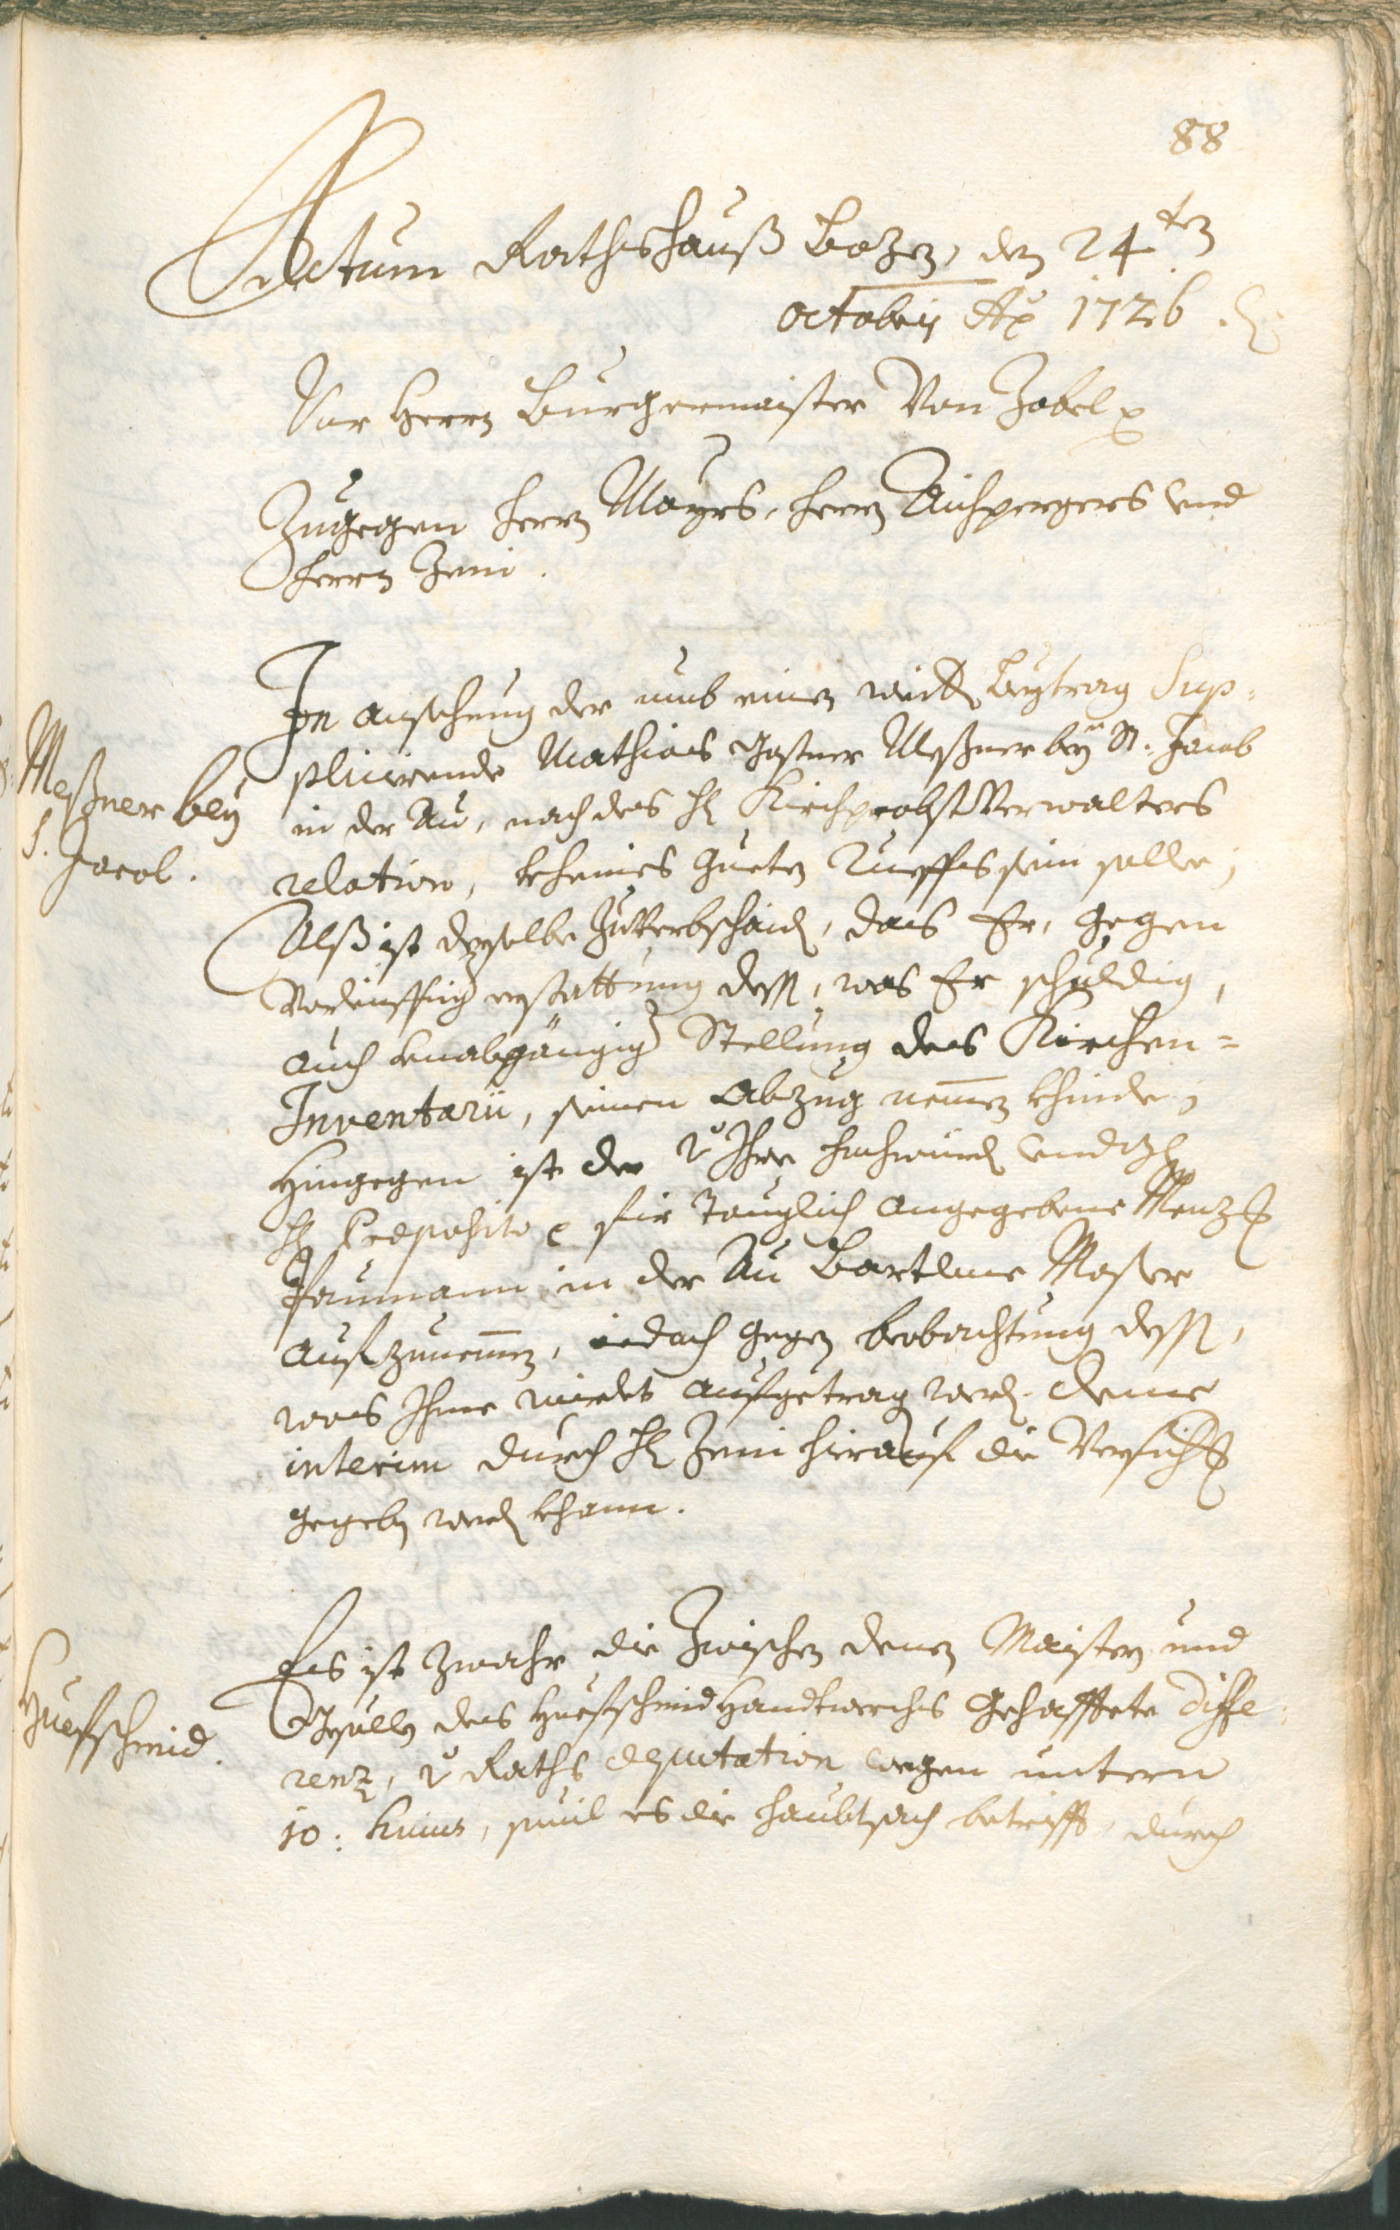 88
Actum Rathshauß Bozen, den 24ten
octobris Ao 1726.
Vor Herrn Burgermaister Von Zobel
Zugegen herrn Mayrs, herrn Aichpergers und
herrn Zeni.
Meßner bey
S. Jacob.
In ansehung der umb einen Beytrag Sup-
plicierende Mathias Gostner Meßner bey St. Jacob
in der Au, nach des H. Kirchprobst Verwalters
relation, kheines gueten Rueffs sein solle;
Alß ist derselbe zuverbschaiden, das Er, gegen
erstattung dessen, was Er schuldig,
auch unabgängiger Stellung des Kirchen-
Inventarii, seinen Abzug nemmen khinde;
Hingegen ist der v. Ihre hochwürden und
H. Praeposito für tauglich angegebene
Paumann in der Au Bartlme Moser
aufzunemmen, iedoch gegen beobachtung dessen,
was Ihme wirdet aufgetragen werden. deme
interim durch H. Zeni hierauf die
gegeben werden khann.
Huefschmid.
Es ist zwahr die zwischen denen Maistern und
Gesellen des Huefschmid Handtwerchs gehaffte diffe-
renz, v. Raths deputation wegen untern
10: huius, sovil es die haubtsach betrifft, durch